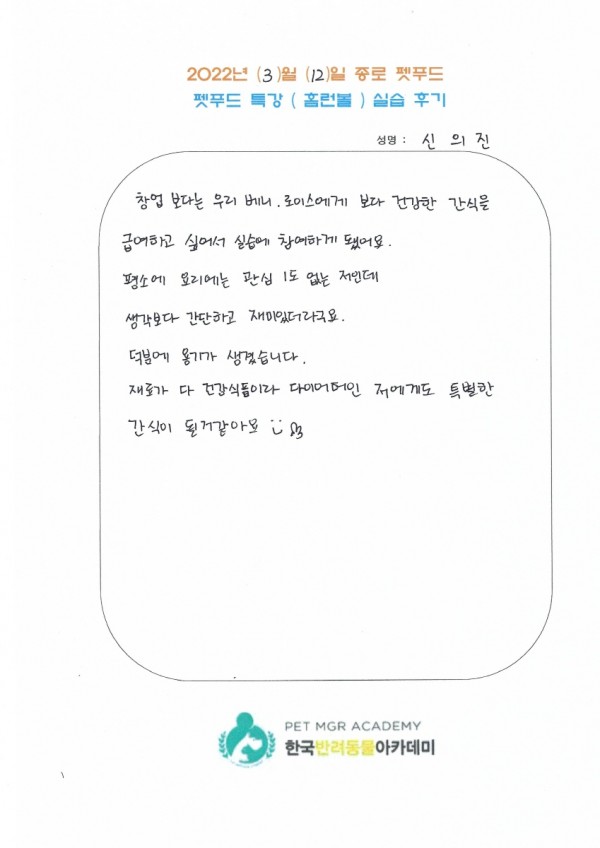 2022년 (3)월 (12)일 종로 펫푸드
펫푸드 특강 ( 홈런볼 ) 실습 후기
성명 : 신 의 진
창업 보다는 우리 베니. 로이스에게 보다 건강한 간식을
급여하고 싶어서 실습에 참여하게 됐어요.
평소에 요리에는 관심 1도 없는 저인데
생각보다 간단하고 재미있더라구요.
덕분에 용기가 생겼습니다.
재료가 다 건강식품이라 다이어터인 저에게도 특별한
간식이 될거같아요
PET MGR ACADEMY
한국반려동물아카데미